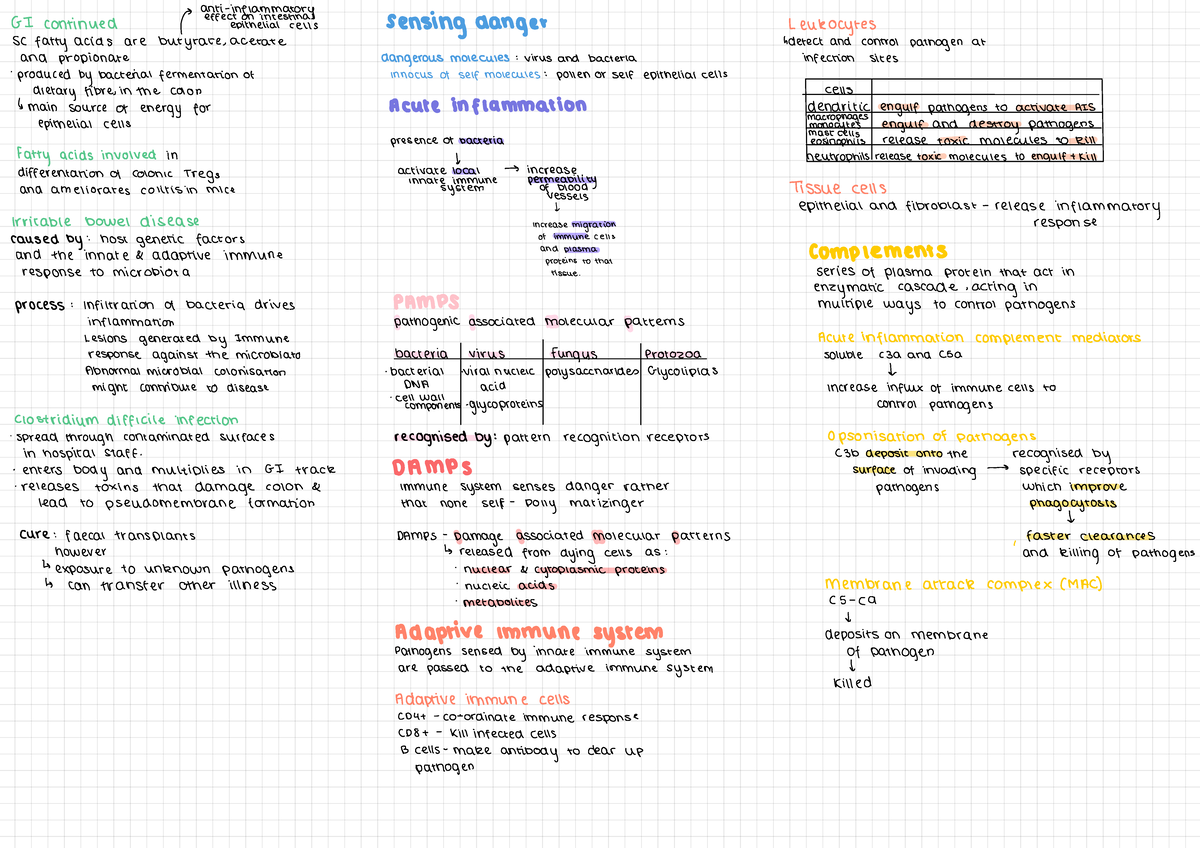 GI continued
anti-inflammatory
effect on intestinal
epithelial cells
SC fatty acids are butyrate, acetate
and propionate
· produced by bacterial fermentation of
dietary fibre, in the colon
↳ main source of energy for
epithelial cells
Fatty acids involved in
differentation of colonic Tregs
and ameliorates colitis in mice
Irricable bowel disease
caused by: host genetic factors
and the innate & adaptive immune
response to microbiota
process: infiltration of bacteria drives
inflammation
Lesions generated by Immune
response against the microbiato
Abnormal microbial colonisation
might contribute to disease
Clostridium difficile infection
· spread through contaminated surfaces
in hospital staff.
· enters body and multiplies in GI track
· releases toxins that damage colon &
lead to pseudomembrane formation
cure: faecal transplants
however
↳ exposure to unknown pathogens
↳ can transfer other illness
Sensing danger
dangerous molecules: virus and bacteria
innocus of self molecules: pollen or self epithelial cells
Acute inflammation
presence of bacteria
↓
activate local
innate immune
system
→ increase
permeability
of blood
vessels
↓
increase migration
of immune cells
and plasma
proteins to that
tissue.
PAMPS
pathogenic associated molecular patterns
bacteria virus fungus Protozoa
· bacterial viral nucleic polysaccharides Glycolipids
DNA acid
· cell wall
components · glycoproteins
recognised by: pattern recognition receptors
DAMPs
immune system senses danger rather
that none self - Polly matizinger
DAMPs - Damage associated Molecular patterns
↳ released from dying cells as:
· nuclear & cytoplasmic proteins
· nucleic acids
· metabolites
Adaptive immune system
Pathogens sensed by innate immune system
are passed to the adaptive immune system
Adaptive immune cells
CD4+ - co-ordinate immune response
CD8+ - Kill infected cells
B cells - make antibody to clear up
pathogen
Leukocytes
↳ detect and control pathogen at
infection sites
cells
dendritic engulf pathogens to activate AIS
macrophages
monocytes engulf and destroy pathogens
mast cells
eosinophils release toxic molecules to kill
neutrophils release toxic molecules to engulf + kill
Tissue cells
epithelial and fibroblast - release inflammatory
response
Complements
series of plasma protein that act in
enzymatic cascade, acting in
multiple ways to control pathogens
Acute Inflammation complement mediators
soluble C3a and C5a
↓
increase influx of immune cells to
control pathogens
Opsonisation of pathogens
C3b deposit onto the
surface of invading
pathogens
→ recognised by
specific receptors
which improve
phagocytosis
↓
faster clearances
and killing of pathogens
Membrane attack complex (MAC)
C5-Ca
↓
deposits on membrane
of pathogen
↓
killed